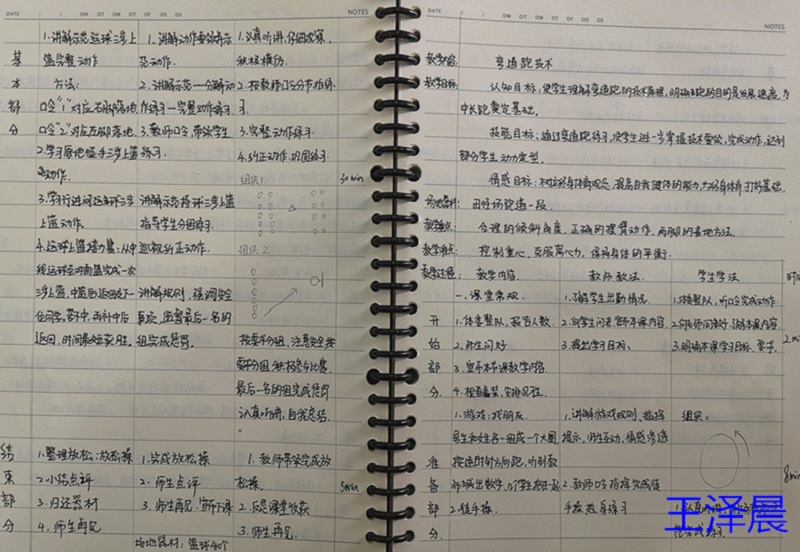 DATE / / OM OT OW OT OF OS OS NOTES
1.讲解示范运球三步上 1.讲解动作要领并示 1.认真听讲,仔细观察,
基 篮完整动作 范动作. 积极模仿.
本 方法: 2.讲解示范一分解动 2.按教师口令分节拍练
部 口令"1"对应右脚落地 作练习—完整动作练习 习.
分 口令"2"对应左脚落地. 3.教师口令,带领学生 3.完整动作练习.
2.学习原地徒手三步上篮 练习. 4.纠正动作,巩固练习.
动作. 组织1 30min
3.学习行进间运球三步 讲解示范持球三步上篮
上篮动作. 指导学生分组练习.
4.运球上篮接力赛:从中 巡视纠正动作. 组织2
线运球至对面篮完成一次
三步上篮,中篮后返回 讲解规则,强调安全
返回,时间最短获胜. 组完成惩罚. 按要求分组,注意安全
最后一名的组完成惩罚
认真听讲,自我总结.
结 1.整理放松:放松操 1.完成放松操 1.教师带领完成放
束 2.小结点评 2.师生点评 松操. 5min
部 3.归还器材 3.师生再见,宣布下课 2.反思课堂收获
分 4.师生再见 3.师生再见.
场地器材:篮球40个
DATE / / OM OT OW OT OF OS OS NOTES
教学内容: 弯道跑技术
教学目标: 认知目标:使学生理解弯道跑的技术原理,明确跑的目的是发展速度,为
中长跑奠定基础.
技能目标:通过弯道跑练习,使学生进一步掌握技术要领,完成动作,达到
部分学生动力定型.
情感目标:树立终身体育观念,提高自我健体的能力,为终身体育打好基础.
场地器材: 田径场跑道一段.
教学重点: 合理的倾斜角度、正确的摆臂动作、两脚的着地方法.
教学难点: 控制重心、克服离心力,保持身体的平衡.
教学过程: 教学内容 教师教法 学生学法 时间
一、课堂常规 1.了解学生出勤情况. 1.体委整队,听口令完成动作
开 1.体委整队,报告人数. 2.向学生问好,宣布本课内容. 2.向教师问好,了解本课内容.
始 2.师生问好 3.提出学习目标. 3.明确本课学习目标、要求. 2min
部 3.宣布本节课教学内容
分. 4.检查着装,安排见习生.
1.游戏:找朋友. 1.讲解游戏规则、指挥 组织:
男生和女生各一组成一个大圆 提示,师生互动,情感渗透
准 按逆时针方向跑,听到教
备 师喊出数字,几个学生抱在一起 2.教师口令指挥完成徒 8min
部 2.徒手操. 手操热身练习
分. 1.认真听讲
王泽晨